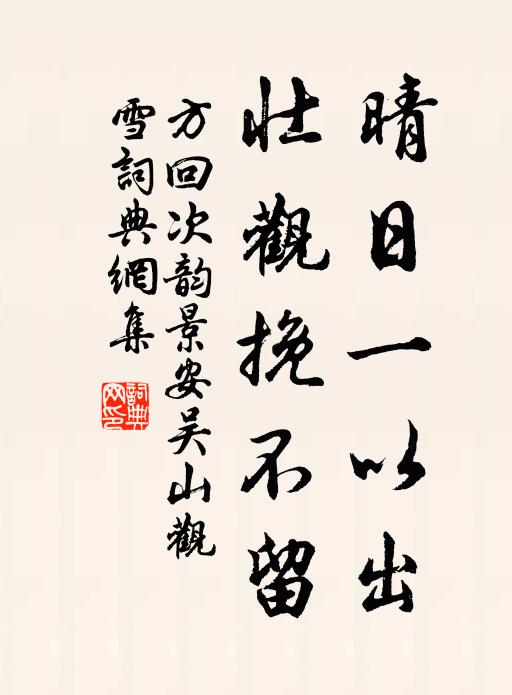 晴日一以出
壯觀挽不留
方回次韵景安吴山觀
雪詞典網集
詞典網印